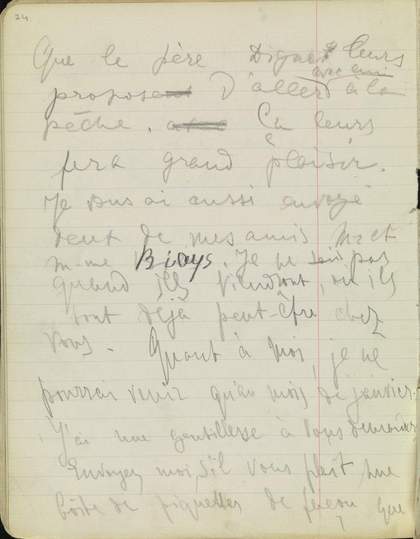 24
Que le père Digne leurs
propose d'aller avec eux à la
pêche. Ça leurs
fera grand plaisir.
Je vous ai aussi envoyé
deux de mes amis Mr et
m-me Biays. Je ne sais pas
quand ils viendront, ou ils
sont déjà peut-être chez
vous. Quant à moi, je ne
pourrai venir qu'au mois de janvier.
J'ai une gentillesse à vous demander
Envoyez moi, s'il vous plaît une
boîte de piquettes de façon que